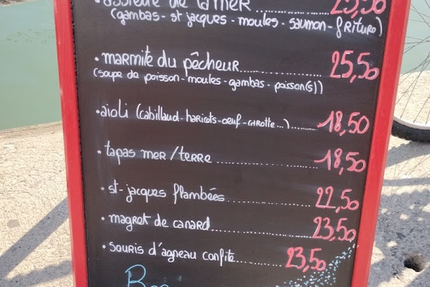 • assiette de la mer ........ 25,50
(gambas - st jacques - moules - saumon - friture)
• marmite du pêcheur ........ 25,50
(soupe de poisson - moules - gambas - poisson(s))
• aïoli (cabillaud - haricots - oeuf - carotte...) ........ 18,50
• tapas mer / terre ........ 18,50
• st-jacques flambées ........ 22,50
• magret de canard ........ 23,50
• souris d'agneau confite ........ 23,50